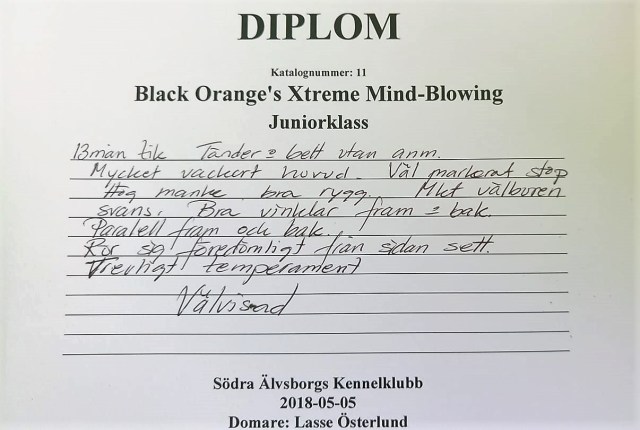 DIPLOM
Katalognummer: 11
Black Orange's Xtreme Mind-Blowing
Juniorklass
13mån tik Tänder & bett utan anm.
Mycket vackert huvud. Väl markerat stop
Hög manke bra rygg. Mkt välburen
svans. Bra vinklar fram & bak.
Paralell fram och bak.
Rör sig föredömligt från sidan sett.
Trevligt temperament
Välvisad
Södra Älvsborgs Kennelklubb
2018-05-05
Domare: Lasse Österlund